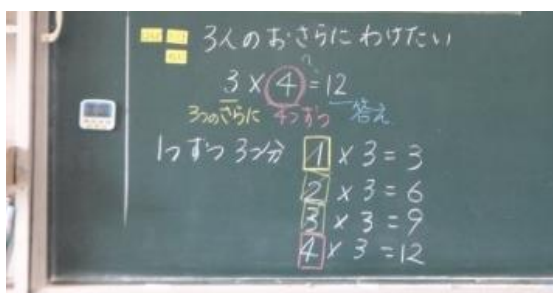 3人のおさらにわけたい
3×4=12
3つのさらに 4つずつ 答え
1つずつ 3つ分 1×3=3
2×3=6
3×3=9
4×3=12